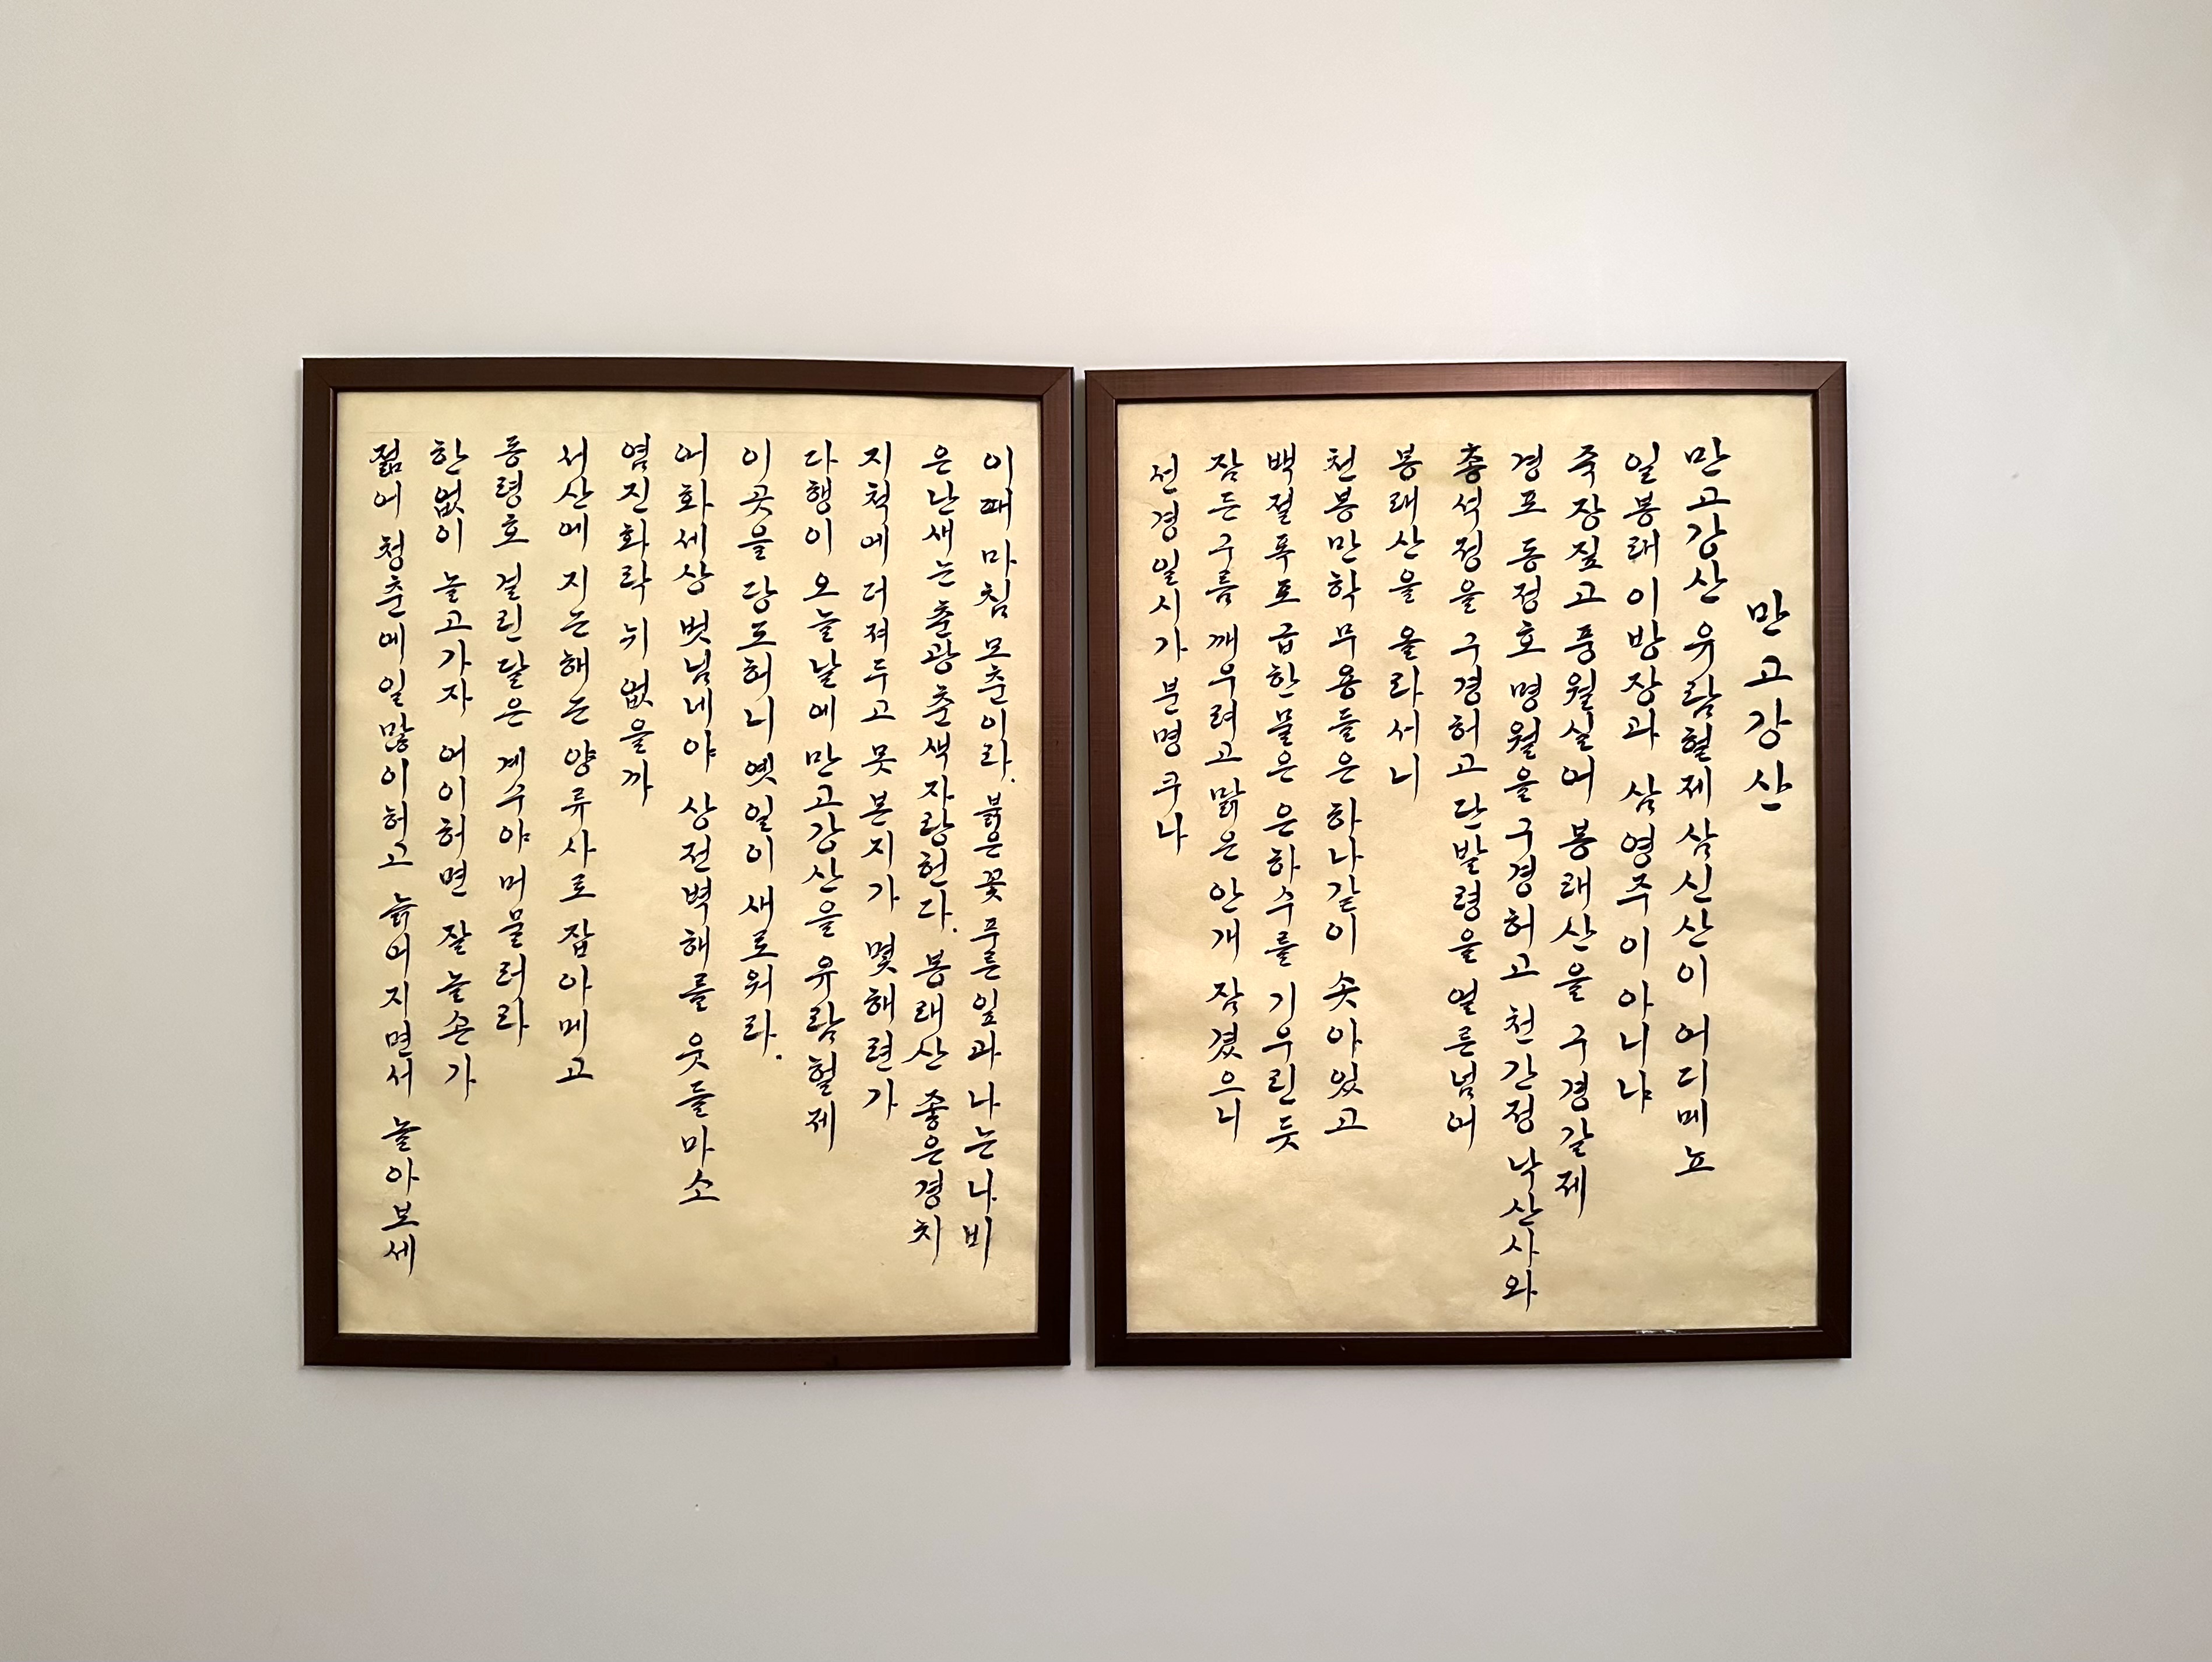 만고강산
만고강산 유람헐제 삼신산이 어디메뇨
일봉래 이방장과 삼영주 이 아니냐
죽장짚고 풍월실어 봉래산을 구경갈제
경포 동정호 명월을 구경허고 천간정 낙산사와
총석정을 구경허고 단발령을 얼른넘어
봉래산을 올라서니
천봉만학 무용들은 하나같이 솟아있고
백절폭포 급한물은 은하수를 기우린듯
잠든구름 깨우려고 맑은 안개 잠겼으니
선경일시가 분명쿠나
이때 마침 모춘이라. 붉은꽃 푸른잎과 나는나비
은난새는 춘광춘색 자랑현다. 봉래산 좋은경치
지척에 더져두고 못본지가 몇해련가
다행이 오늘날에 만고강산을 유람헐제
이곳을 당도허니 옛일이 새로워라.
어화세상 벗님네야 상전벽해를 웃들마소
엽진화락 뉘 없을까
서산에 지는해는 양류사로 잡아메고
동령호 걸린달은 계수야 머물러라
한없이 놀고가자 어이허면 잘 놀손가
젊어 청춘에 일많이허고 늙어지면서 놀아보세